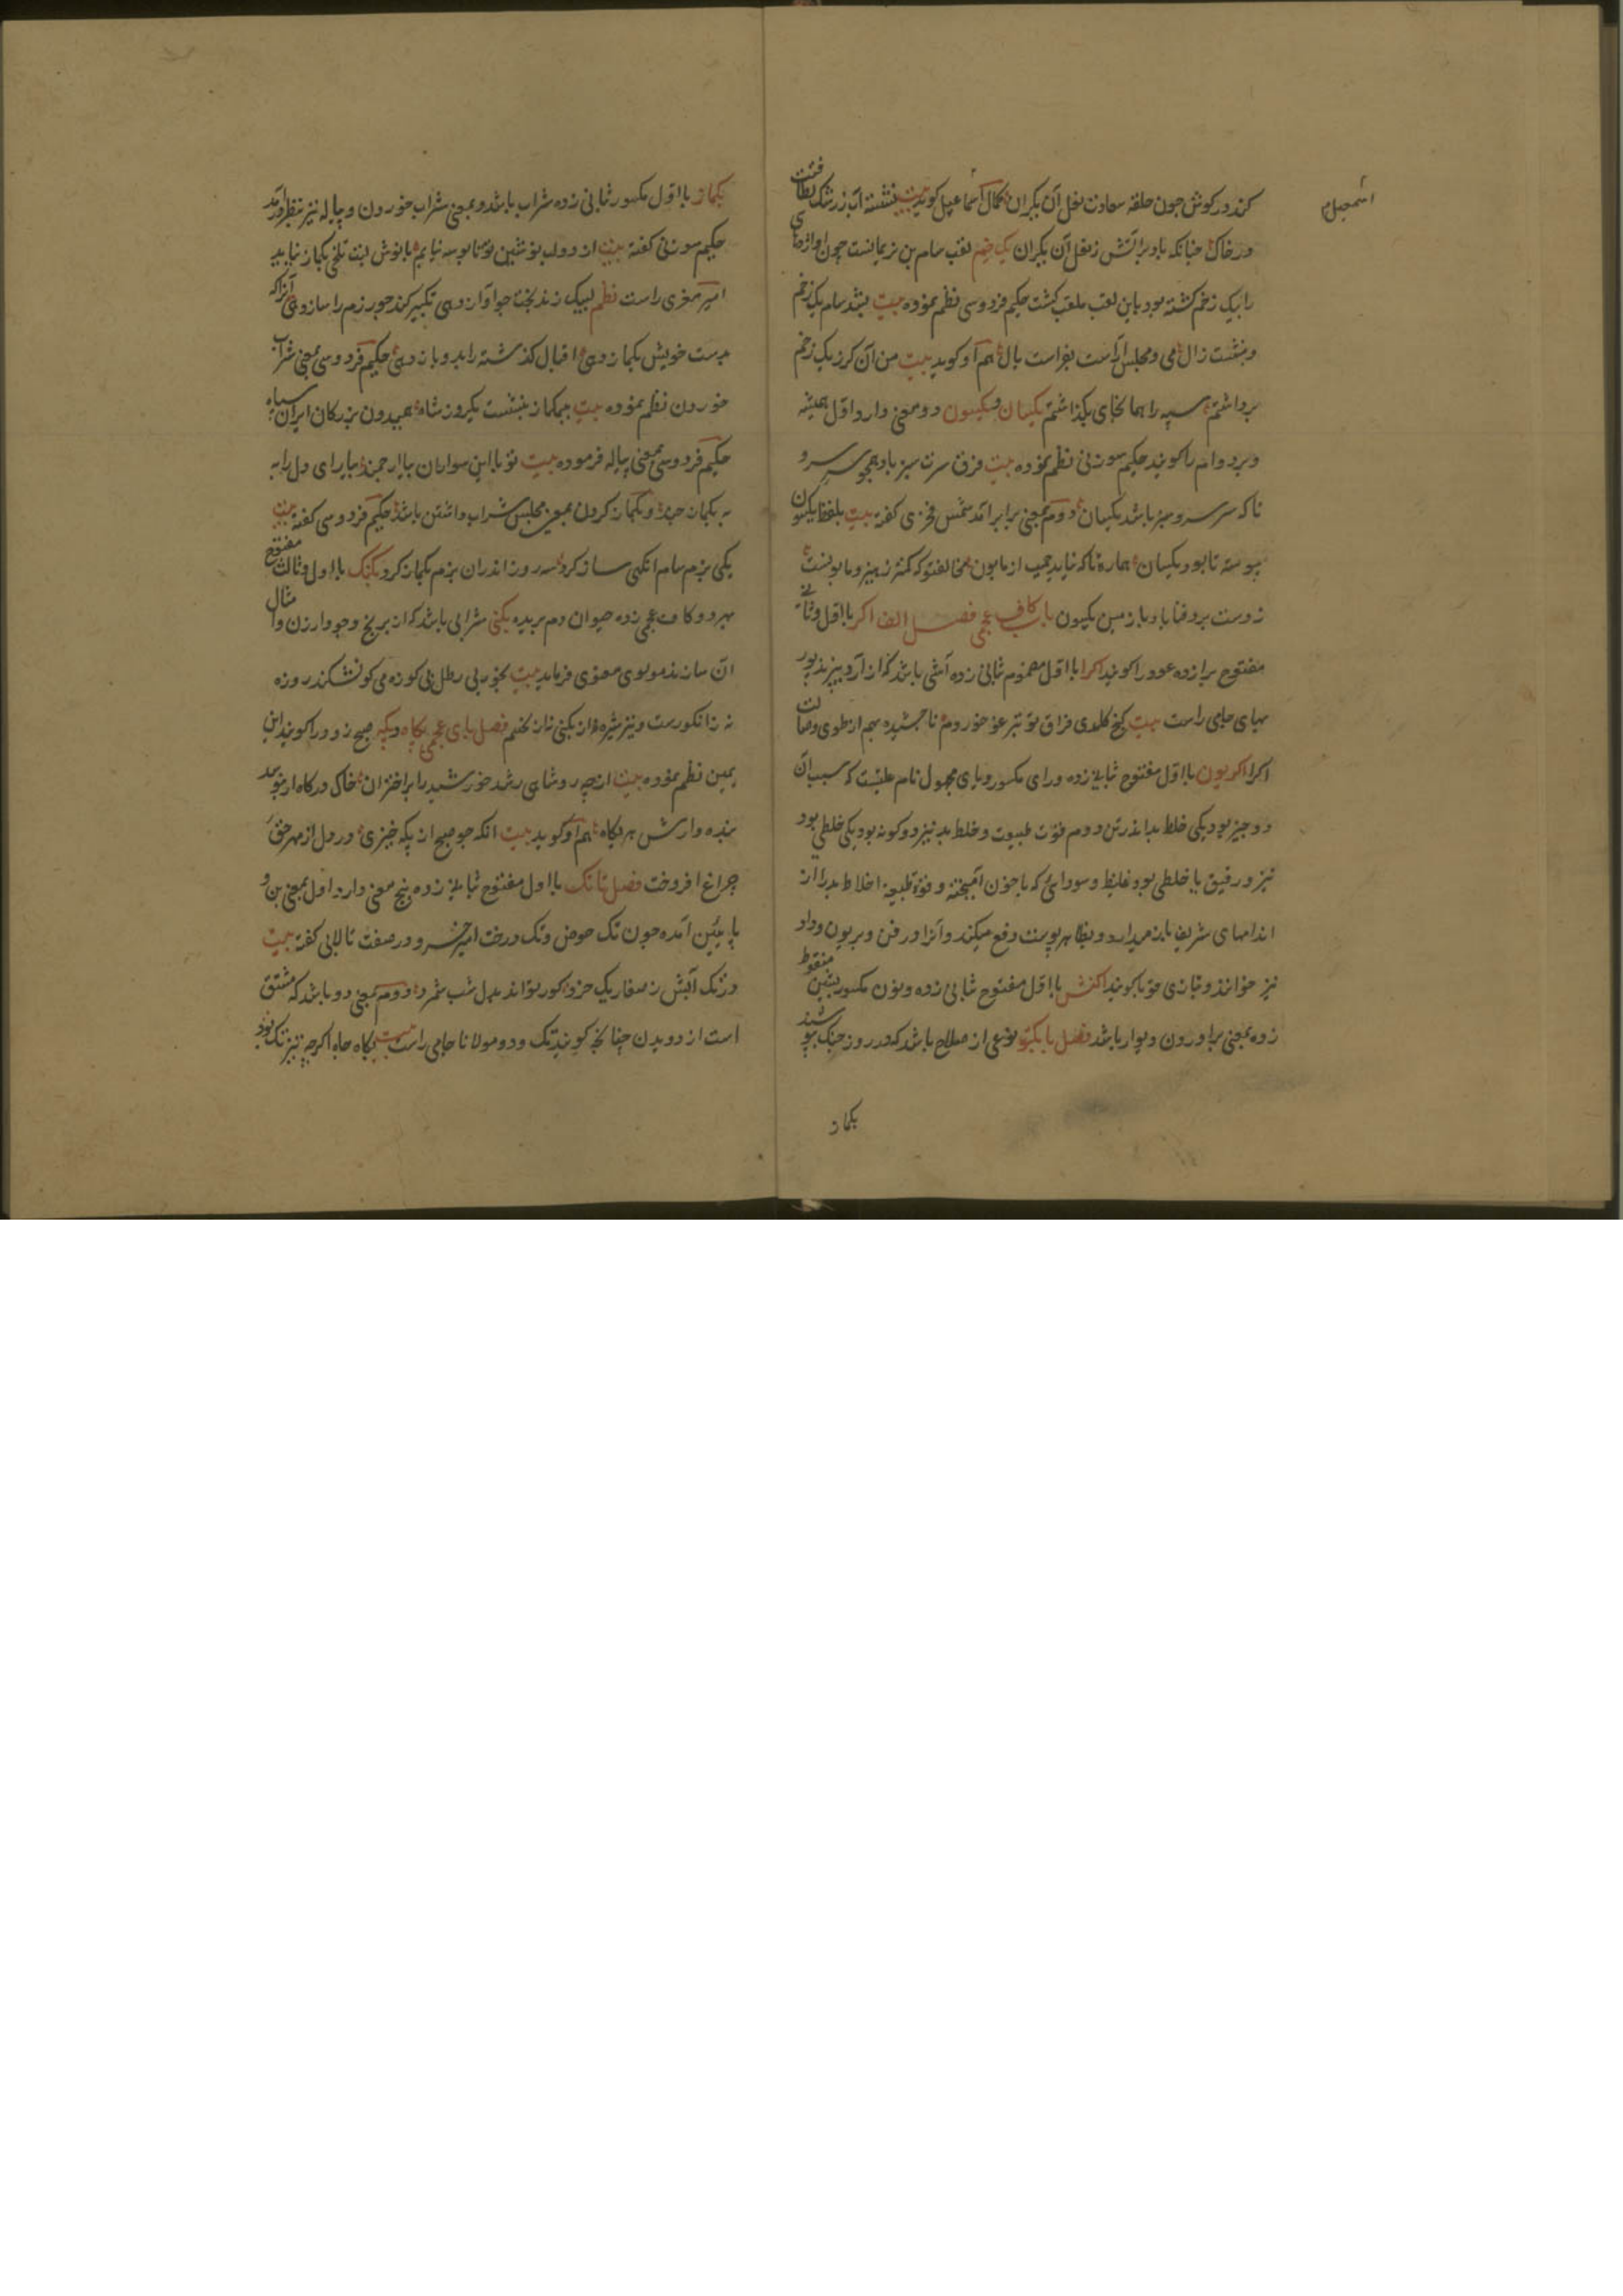 کند در کوش جون حلقه سعادت نعل آن یکران کمال اسماعیل کوید بیت نشسته آب ز رشک لطافتت
در خاک چنانکه باد بر آتش ز نعل آن یکران یک زخم لقب سام بن نریمانست چون اژدهای
را بیک زخم کشته بود باین لقب ملقب کشت حکیم فردوسی نظم نموده بیت بشد سام یک زخم
و بنشست زال می و مجلس آراست بفراست یال هم او کوید بیت من آن کرز یک زخم
برداشتم سپه را هما نجای بکذاشتم یکسان و یکسون دو معنی دارد اول همیشه
و بر دوام را کویند حکیم سوزنی نظم نموده بیت فرق سرت سبز باد همچو سر سرو
تا که سر سرو سبز باشد یکسان دوم بمعنی برابر آمد شمس فخری کفته بیت بلفظ یکسون
پیوسته تا بود یکسان هماره تا که نیاید
ز دست برد فنا باد یکسون باب کاف عجمی فصل الف اکر با اول و ثانی
مفتوح برا زده عود را کویند اکرا با اول مضموم ثانی زده آشی باشد که از آرد پزند پور
بهای جامی راست بیت کنج کلدی فراق تو تتر غو خوردم نا چشیده
اکرا اکریون با اول مفتوح ثانی زده و رای مکسور و یای مجهول نام علتیست که سبب آن
دو چیز بود یکی خلط بد اندر تن دوم قوت طبیعت و خلط بد نیز دو کونه بود یکی خلطی بود
تیز و رقیق یا خلطی بود غلیظ و سودائی که با خون آمیخته و قوة طبیعه اخلاط بد را از
اندامهای شریف باز میدارد و بظاهر پوست دفع میکند و آنرا ورفن و بریون و داد
نیز خوانند و بتازی قوبا کویند اکنش با اول مفتوح ثانی زده و نون مکسور بشین منقوط
زده بمعنی برآوردن دیوار باشد فصل با بکتو نوعی از سلاح باشد که در روز جنک پوشند
بکماز
اسمعیل
بکماز با اول مکسور ثانی زده شراب باشد و بمعنی شراب خوردن و پیاله نیز بنظر درآمد
حکیم سوزنی کفته بیت از دو لب نوشین تو تا بوسه نیابم با نوش لبت تلخی بکماز نیابد
امیر معزی راست نظم لبیک زند بخت چو آواز دهی تکبیر کند چو رزم را ساز دهی آنرا که
بدست خویش بکماز دهی اقبال کذشته را بدو باز دهی حکیم فردوسی بمعنی شراب
خوردن نظم نموده بیت ببکماز بنشست یکروز شاه همیدون بزرکان ایران سپاه
حکیم فردوسی بمعنی پیاله فرموده بیت تو با این سواران بیا ارجمند بیارای دل را به
به بکماز چند و بکماز کردن بمعنی مجلس شراب داشتن باشد حکیم فردوسی کفته بیت
یکی بزم سام آنکهی ساز کرد سه روز اندران بزم بکماز کرد بکنک با اول و ثالث مفتوح
بهر دو کاف عجمی زده حیوان دم بریده بکنی شرابی باشد که از برنج و جو و ارزن و امثال
آن سازند مولوی معنوی فرماید بیت بخور بی رطل بی کوزه می کو نشکند روزه
نه ز انکورست و نیز شیره نه از بکنی نه از کندم فصل بای عجمی پکاه و پکه صبح زود را کویند ابن
یمین نظم نموده بیت از چه رو شاهی رسد خورشید را بر اختران خاک درکاه ار نبوید
بنده وارش هر پکاه هم او کوید بیت آنکه چو صبح از پکه خیزی در دل از مهر حق
چراغ افروخت فصل تا تک با اول مفتوح ثانی زده پنج معنی دارد اول بمعنی بن و
پایین آمده چون تک حوض و تک درخت امیر خسرو در صفت تالابی کفته بیت
در تک آبش ز صفا ریک خرد کور تواند بدل شب شمرد دوم بمعنی دو باشد که مشتق
است از دویدن چنانچه کویند تک و دو مولانا جامی راست بیت بکاه جاه اکرچه تیز تک بود